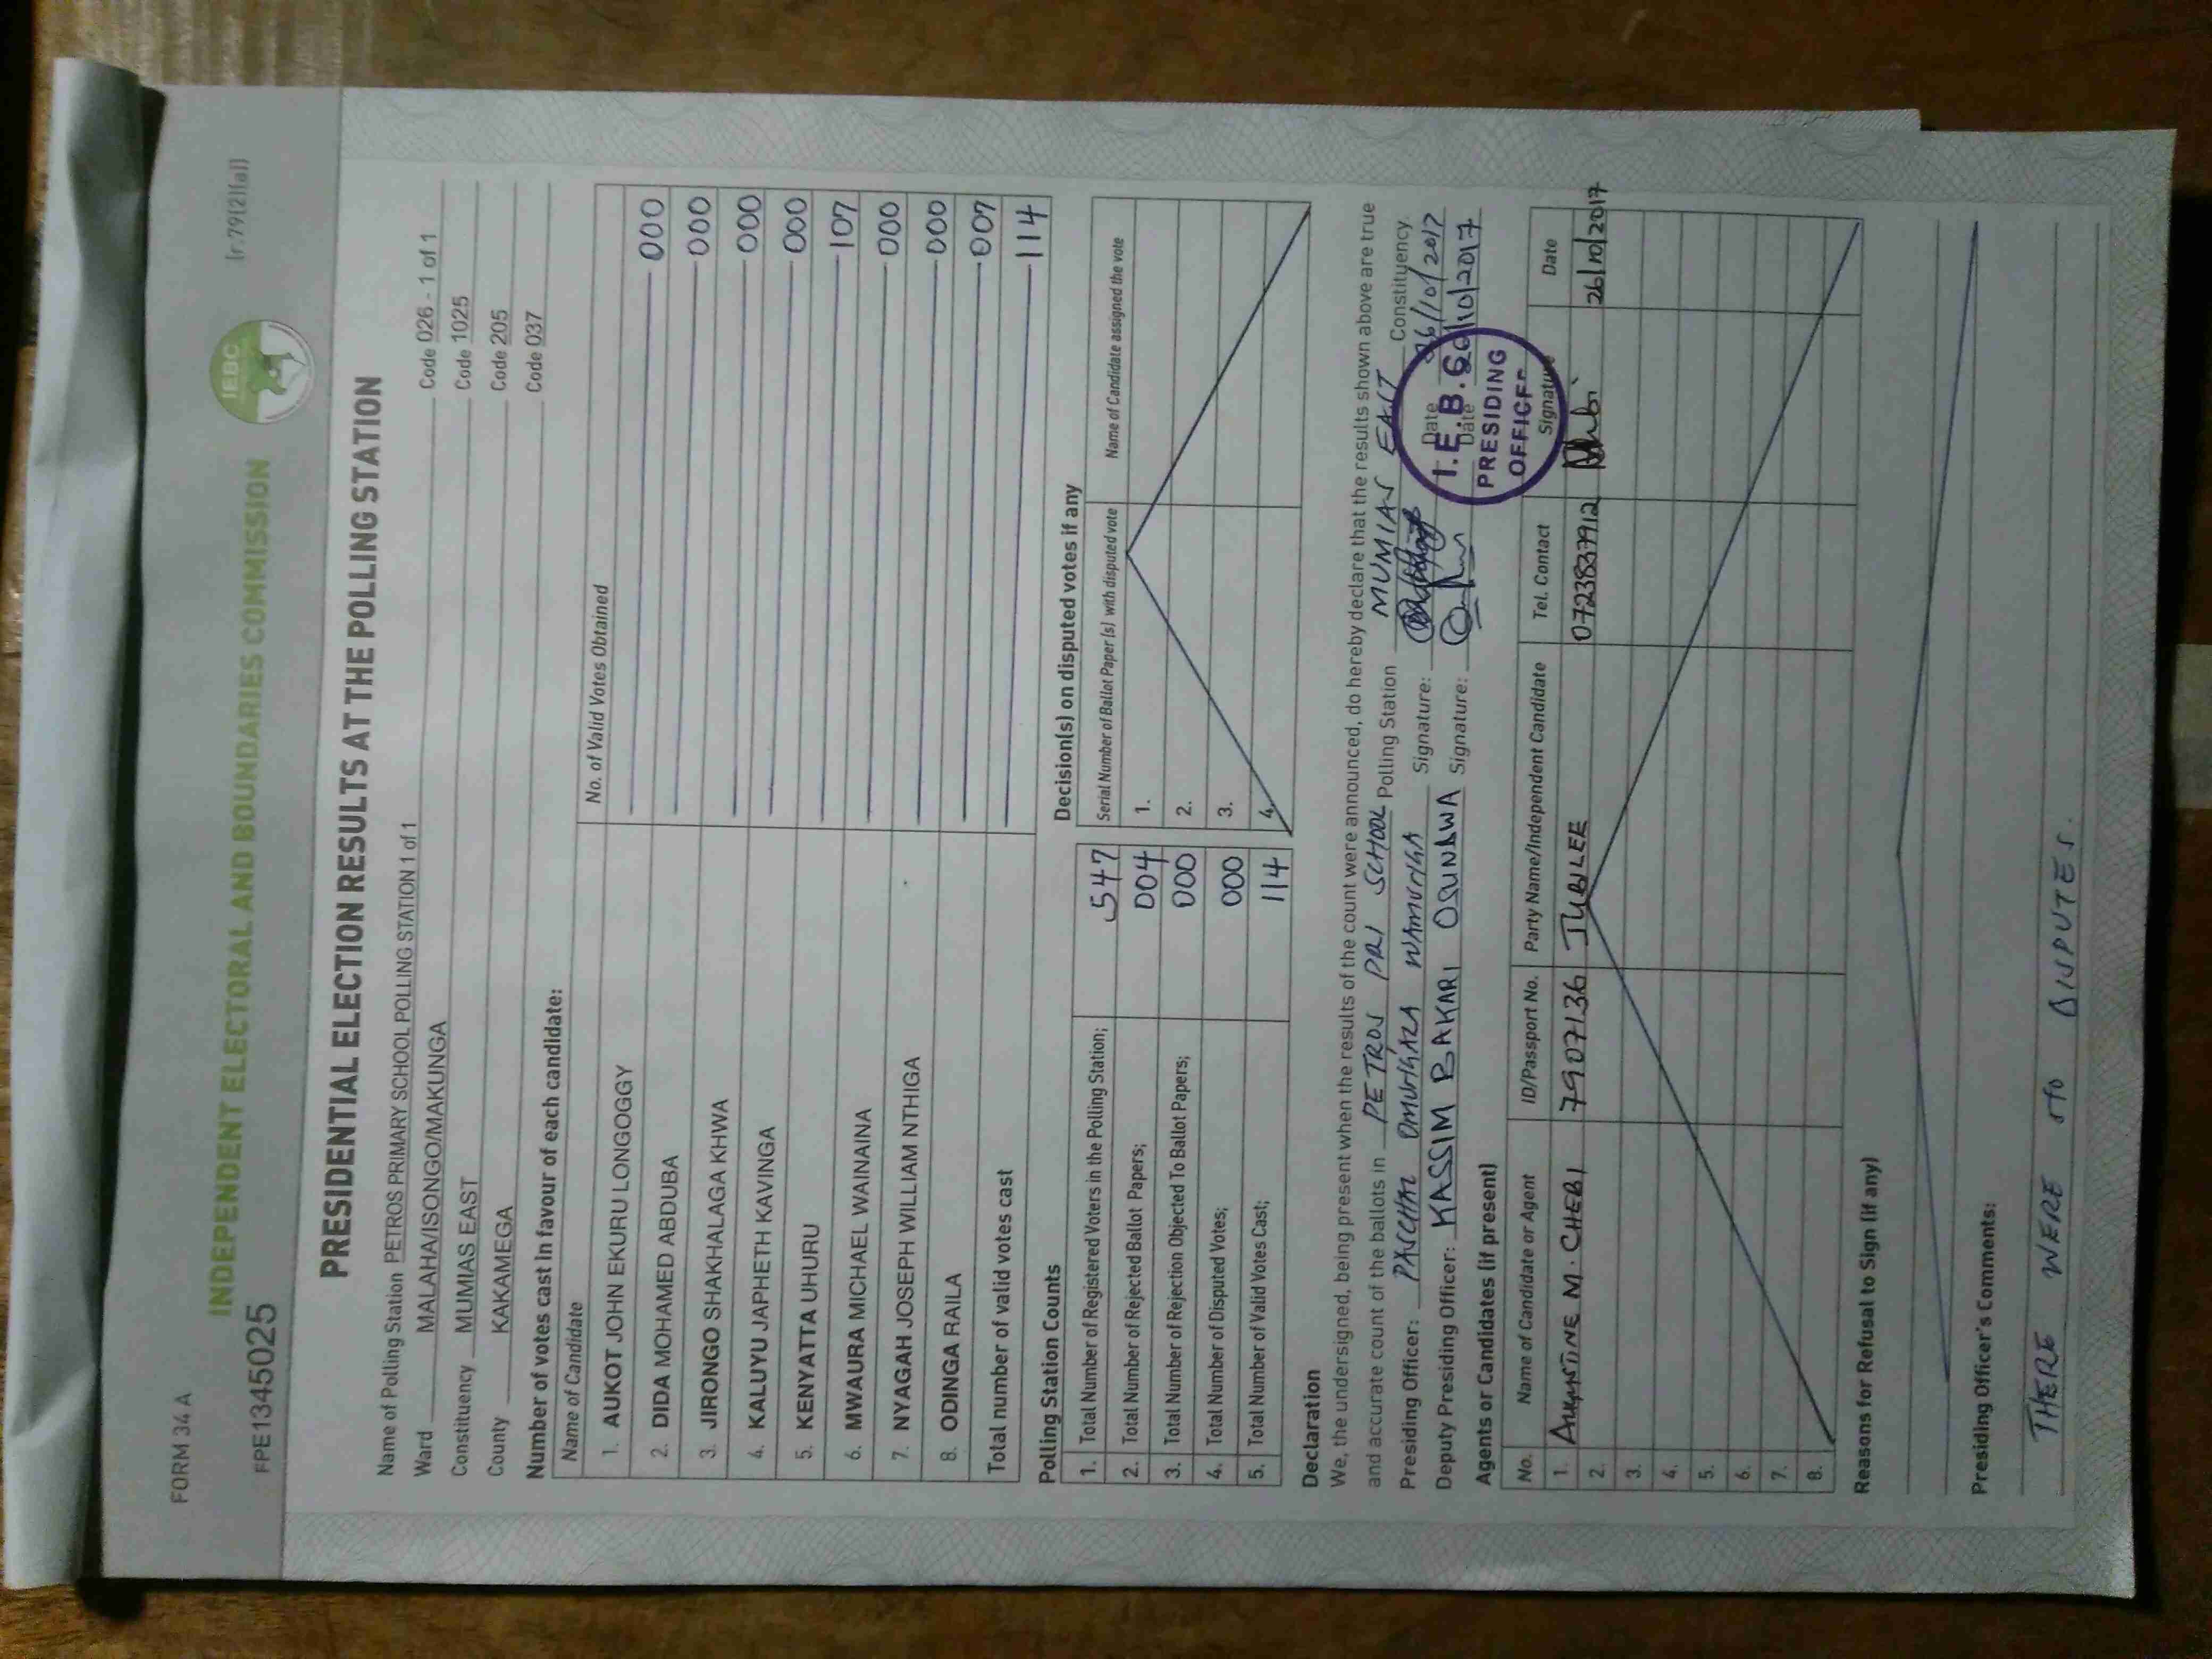 FORM 34 A
INDEPENDENT ELECTORAL AND BOUNDARIES COMMISSION
IEBC
[r.79(2)(a)]
FPE1345025
PRESIDENTIAL ELECTION RESULTS AT THE POLLING STATION
Name of Polling Station PETROS PRIMARY SCHOOL POLLING STATION 1 of 1 Code 026 - 1 of 1
Ward MALAHA/ISONGO/MAKUNGA Code 1025
Constituency MUMIAS EAST Code 205
County KAKAMEGA Code 037
Number of votes cast in favour of each candidate:
Name of Candidate No. of Valid Votes Obtained
1. AUKOT JOHN EKURU LONGOGGY 000
2. DIDA MOHAMED ABDUBA 000
3. JIRONGO SHAKHALAGA KHWA 000
4. KALUYU JAPHETH KAVINGA 000
5. KENYATTA UHURU 107
6. MWAURA MICHAEL WAINAINA 000
7. NYAGAH JOSEPH WILLIAM NTHIGA 000
8. ODINGA RAILA 007
Total number of valid votes cast 114
Polling Station Counts
1. Total Number of Registered Voters in the Polling Station; 547
2. Total Number of Rejected Ballot Papers; 004
3. Total Number of Rejection Objected To Ballot Papers; 000
4. Total Number of Disputed Votes; 000
5. Total Number of Valid Votes Cast; 114
Decision(s) on disputed votes if any
Serial Number of Ballot Paper (s) with disputed vote Name of Candidate assigned the vote
1.
2.
3.
4.
Declaration
We, the undersigned, being present when the results of the count were announced, do hereby declare that the results shown above are true
and accurate count of the ballots in PETROS PRI SCHOOL Polling Station MUMIAS EAST Constituency.
Presiding Officer: PASCHAL OMUKAZA WAMUNGA Signature: Date 26/10/2017
Deputy Presiding Officer: KASSIM BAKARI OSUNDWA Signature: Date 26/10/2017
I.E.B.C
PRESIDING
OFFICER
Agents or Candidates (if present)
No. Name of Candidate or Agent ID/Passport No. Party Name/Independent Candidate Tel. Contact Signature Date
1. AUGUSTINE M. CHEBI 7907136 JUBLEE 0723837912 26/10/2017
2.
3.
4.
5.
6.
7.
8.
Reasons for Refusal to Sign (if any)
Presiding Officer's Comments:
THERE WERE no DISPUTES.